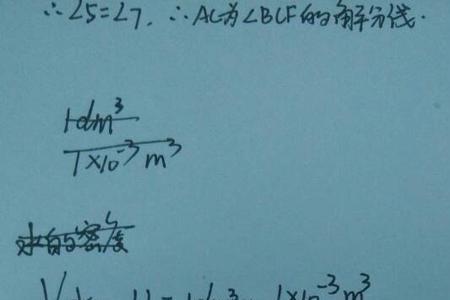 ∴∠5=∠7. ∴AC为∠BCF的角分线.
1dm³
1×10⁻³m³
水的密度
= 1dm³ = 1×10⁻³m³